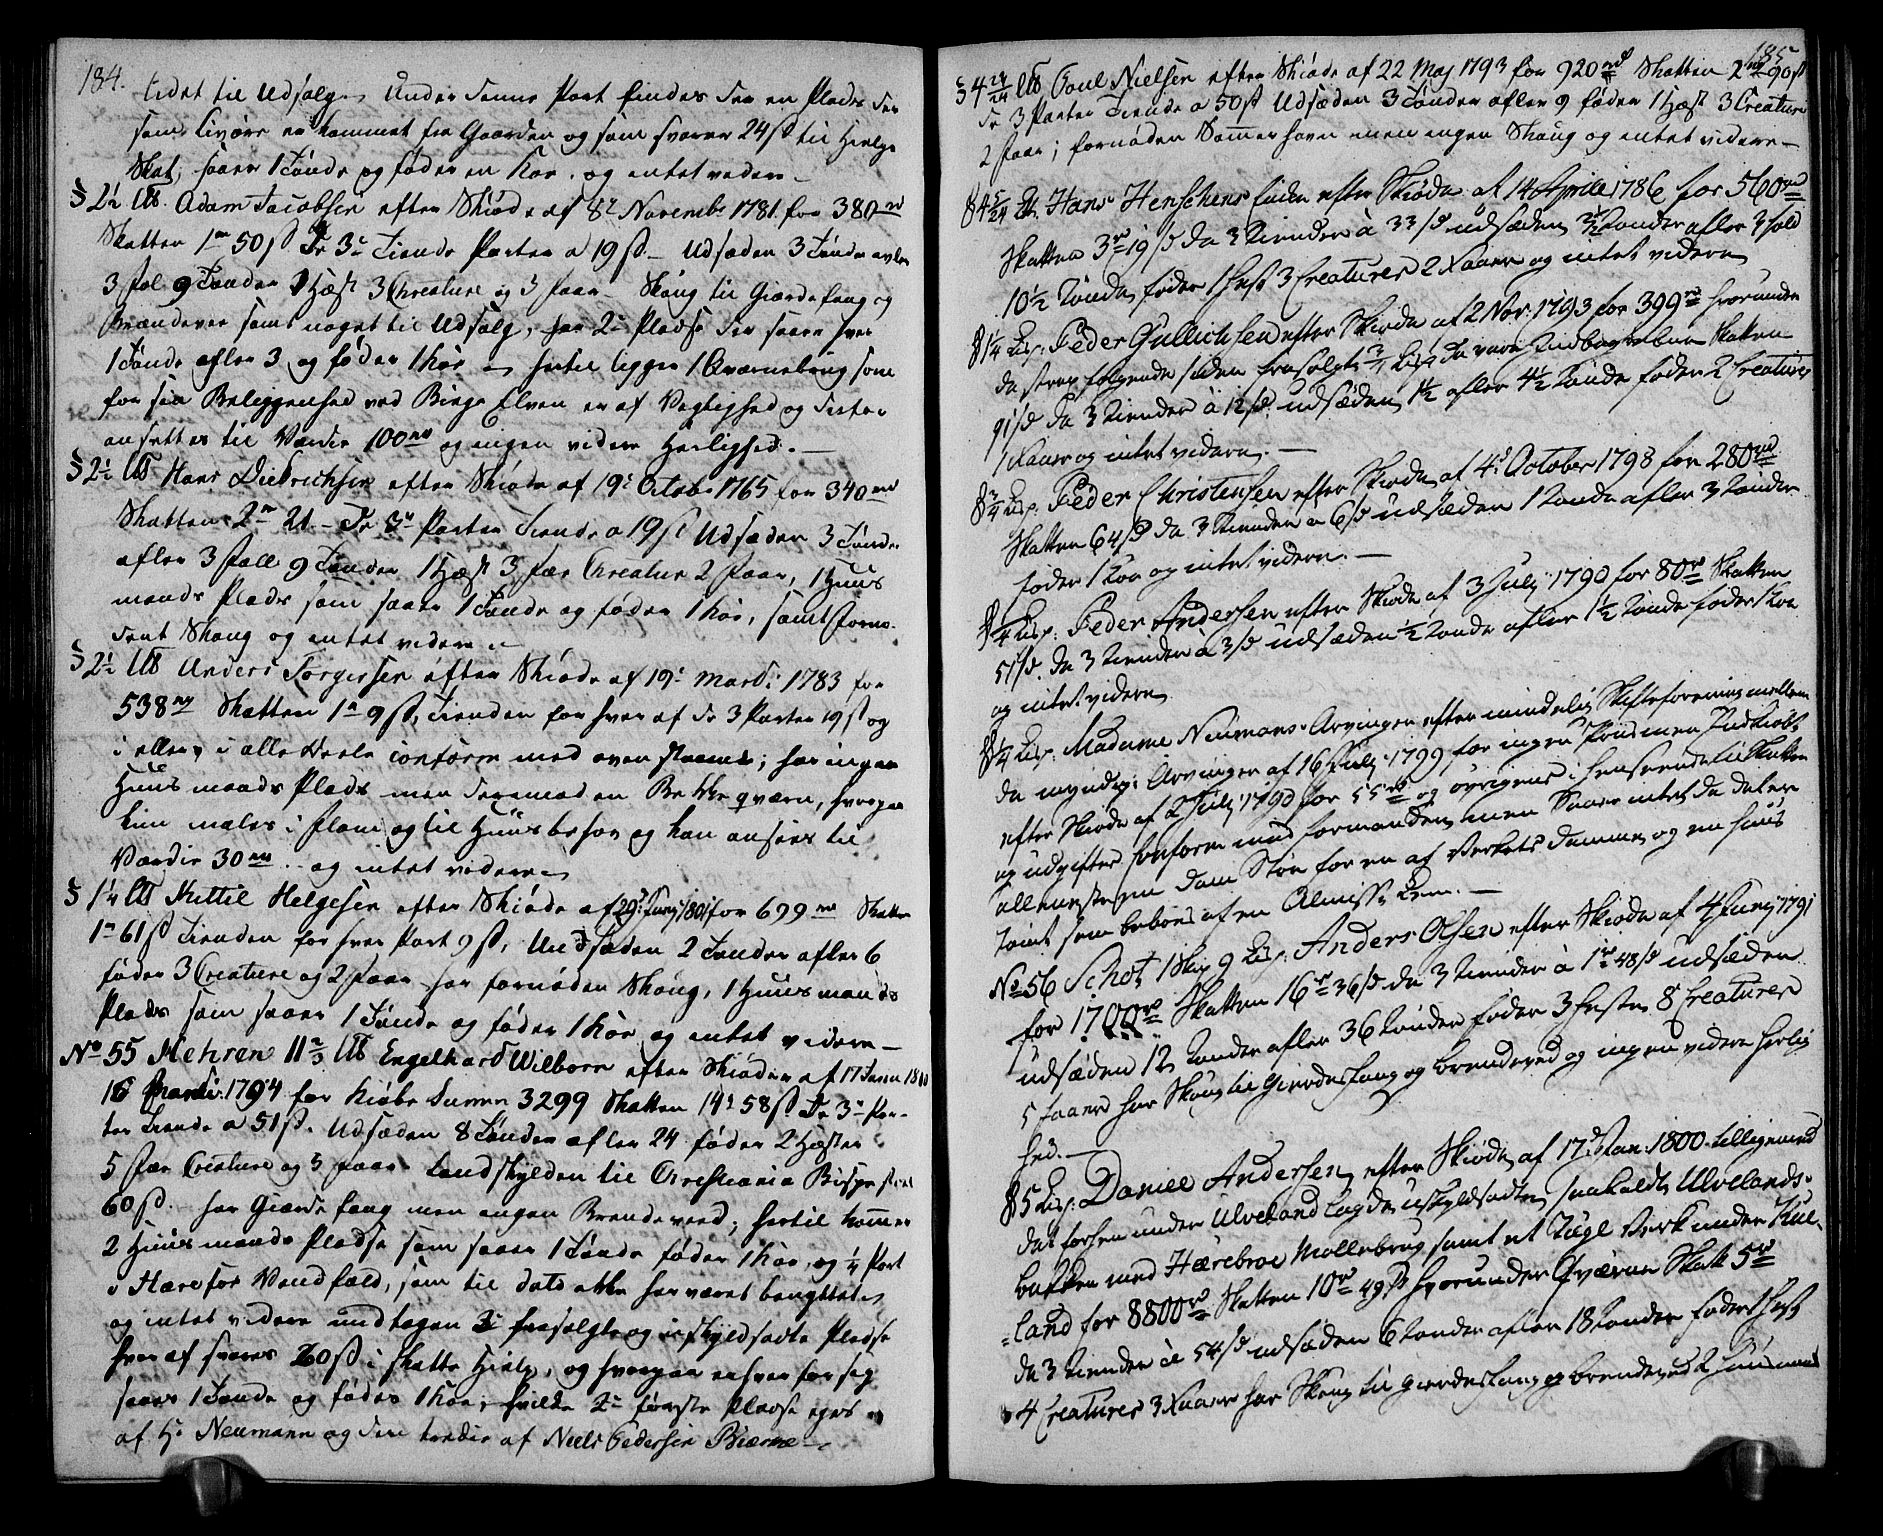 184.
lidet til Udsalg. Under denne Part findes der en Plads der
som er kommet fra Gaarden og som svarer 24 ß til Hielpe
Skat, saaer 1 Tønde og føder en Koe, og intet videre
§ 2½ Lß. Adam Jacobsen efter Skiøde af 8de Novembr 1781. for 380 rd
Skatten 1 rd 50 ß De 3de Tiende Parter a 19 ß. Udsæden 3 Tønde avler
3 fol 9 Tønder 1 Hæst 3 Chreature og 3 faar Skoug til Giærdefang og
Brændeveed samt noget til Udsalg, har 2de Pladse der saaer hver
1 Tønde afler 3 og føder 1 Koe hertil ligger 1 Qværnebrug som
for sin Beliggenhed ved Elven er af Vigtighed og derfor
ansettes til Værdie 100 rd og ingen videre Herlighed.
§ 2½ Lß Hans Diedrichsen efter Skiøde af 19de Octobr 1765 for 340 rd
Skatten 2 rd 21. De 3de Parter Tiende a 19 ß Udsæden 3 Tønde
afler 3 fold 9 Tønder 1 Hæst 3 Creatur 2 faar, 1 Huus
mands Plads som saaer 1 Tønde og føder 1 Koe, samt forne-
dent Skoug og intet videre
§ 2½ Lß Anders Torgersen efter Skiøde af 19de Marti 1783 for
538 rd Skatten 1 rd 9 ß, Tienden for hver af de 3 Parter 19 ß og
i øvrigt i alle Deele conform med ovenstaaende; har ingen
Huusmands Plads men derimod en Bekke qværn, hvorpaa
kun males i flom og til Huusbehov og kan ansees til
Værdie 30 rd og intet videre
§ 1¼ Lß Kittil Helgesen efter Skiøde af 29de Junj 1801 for 699 rd Skatten
1 rd 61 ß Tienden for hver Part 9 ß, Udsæden 2 Tønder afler 6
føder 3 Creature og 2 faar har fornøden Skoug, 1 Huusmands
Plads som saaer 1 Tønde og føder 1 Koe og intet videre
No 55 Nehren 11⅔ Lß Engelhard Wilborn efter Skiøder af 17 Janu 1800
16 Marti 1794 for Kiøbe Summa 3299 Skatten 14 rd 58 ß De 3de Par-
ter Tiende a 51 ß. Udsæden 8 Tønder afler 24 føder 2 Hæster
5 Creature og 5 faar Landskylden til Christiania Bispe
60 ß. har Giærdefang men ingen Brendeveed; hertil kommer
2 Huusmands Pladse som saaer 1 Tønde føder 1 Koe, og ¼ Part
i Harefos Vandfald, som til dato ikke har været benyttet
og intet videre undtagen 3de frasolgte og skyldsadte Pladse
hver af svares 20 ß i Skatte Hielp, og hvorpaa enhver for sig
saaes 1 Tønde og fødes 1 Koe, hvilke 2de første Pladse eyes
af Hr Neumann og den tredie af Niels Pedersen Biærne
185
§ 4 Lß Poul Nielsen efter Skiøde af 22 Maj 1793 for 920 rd Skatten 2 rd 90 ß
De 3 Parter Tiende a 50 ß Udsæden 3 Tønder afler 9 føder 1 Hæst 3 Creature
2 faar; fornøden Sommerhavn men ingen Skoug og intet videre
§ 4 5/24 Lß. Hans Henschens Enke efter Skiøde af 14 Aprile 1786 for 560 rd
Skatten 3 rd 19 ß de 3 Tiender à 33 ß udsæden 3½ Tønder afler 3 fold
10½ Tønde, føder 1 Hest 3 Creaturer 2 Faarer og intet videre
§ 1¼ Lisp: Peder Gullichsen efter Skiøde af 2 Nov: 1793 for 399 rd hvorunder
da strax følgende siden frasolgte ¾ Lispd da vare indbegreben Skatten
91 ß de 3 Tiender à 12 ß. udsæden 1½ afler 4½ Tønde føder 2 Creaturer
1 Faaer og intet videre.
§ ¾ Lisp. Peder Christensen efter Skiøde af 4de October 1798 for 280 rd
Skatten 64 ß de 3 Tiender a 6 ß udsæden 1 Tønde afler 3 Tønder
føder 1 Koe og intet videre.
§ ¼ Lisp: Peder Andersen efter Skiøde af 3 Julij 1790 for 80 rd Skatten
51 ß. de 3 Tiender à 3 ß udsæden ½ Tønde afler 1½ Tønde føder 1 Koe
og intet videre
§ ¼ Lisp: Madame Neumans Arvinger efter mindelig Skifteforening mellem
de myndige Arvinger af 16 Julj 1799 for ingen Priis men Indkiøbt
efter Skiøde af 2 Julj 1790 for 55 rd og øvrigens i henseende til Skatter
og udgifter conform med formanden men Saaer intet da det er
allermeste en dam Støe for en af Verkets Damme og en Huus
Tomt som beboes af en Almisse Lem.
No 56 Schot, 1 Skip 9 Lisp: Anders Olsen efter Skiøde af 4 Junj 1791
for 1700 rd Skatten 16 rd 36 ß de 3 Tiender à 1 rd 48 ß udsæden
udsæden 12 Tønder afler 36 Tønder føder 3 Heste 8 Creaturer
5 faaer har Skoug til Gierdesfang og brendeved og ingen videre herlig
hed.
§ 5 Lisp: Daniel Andersen efter Skiøde af 17de Jan: 1800 tilligemed
det forhen under Ulveland Lagde uskyldsadte saakaldte Ulvelands-
bakken med Hærebroe Møllebrug samt et Tegl Verk under Kul-
=land for 8800 rd Skatten 10 rd 49 ß hvorunder Qværne Skatt 5 rd
de 3 Tiender à 54 ß udsæden 6 Tønder afler 18 Tønder føder 1 Hest
4 Creaturer 3 Faaer har Skoug til gierdesfang og brendeved 2 Huusmænd